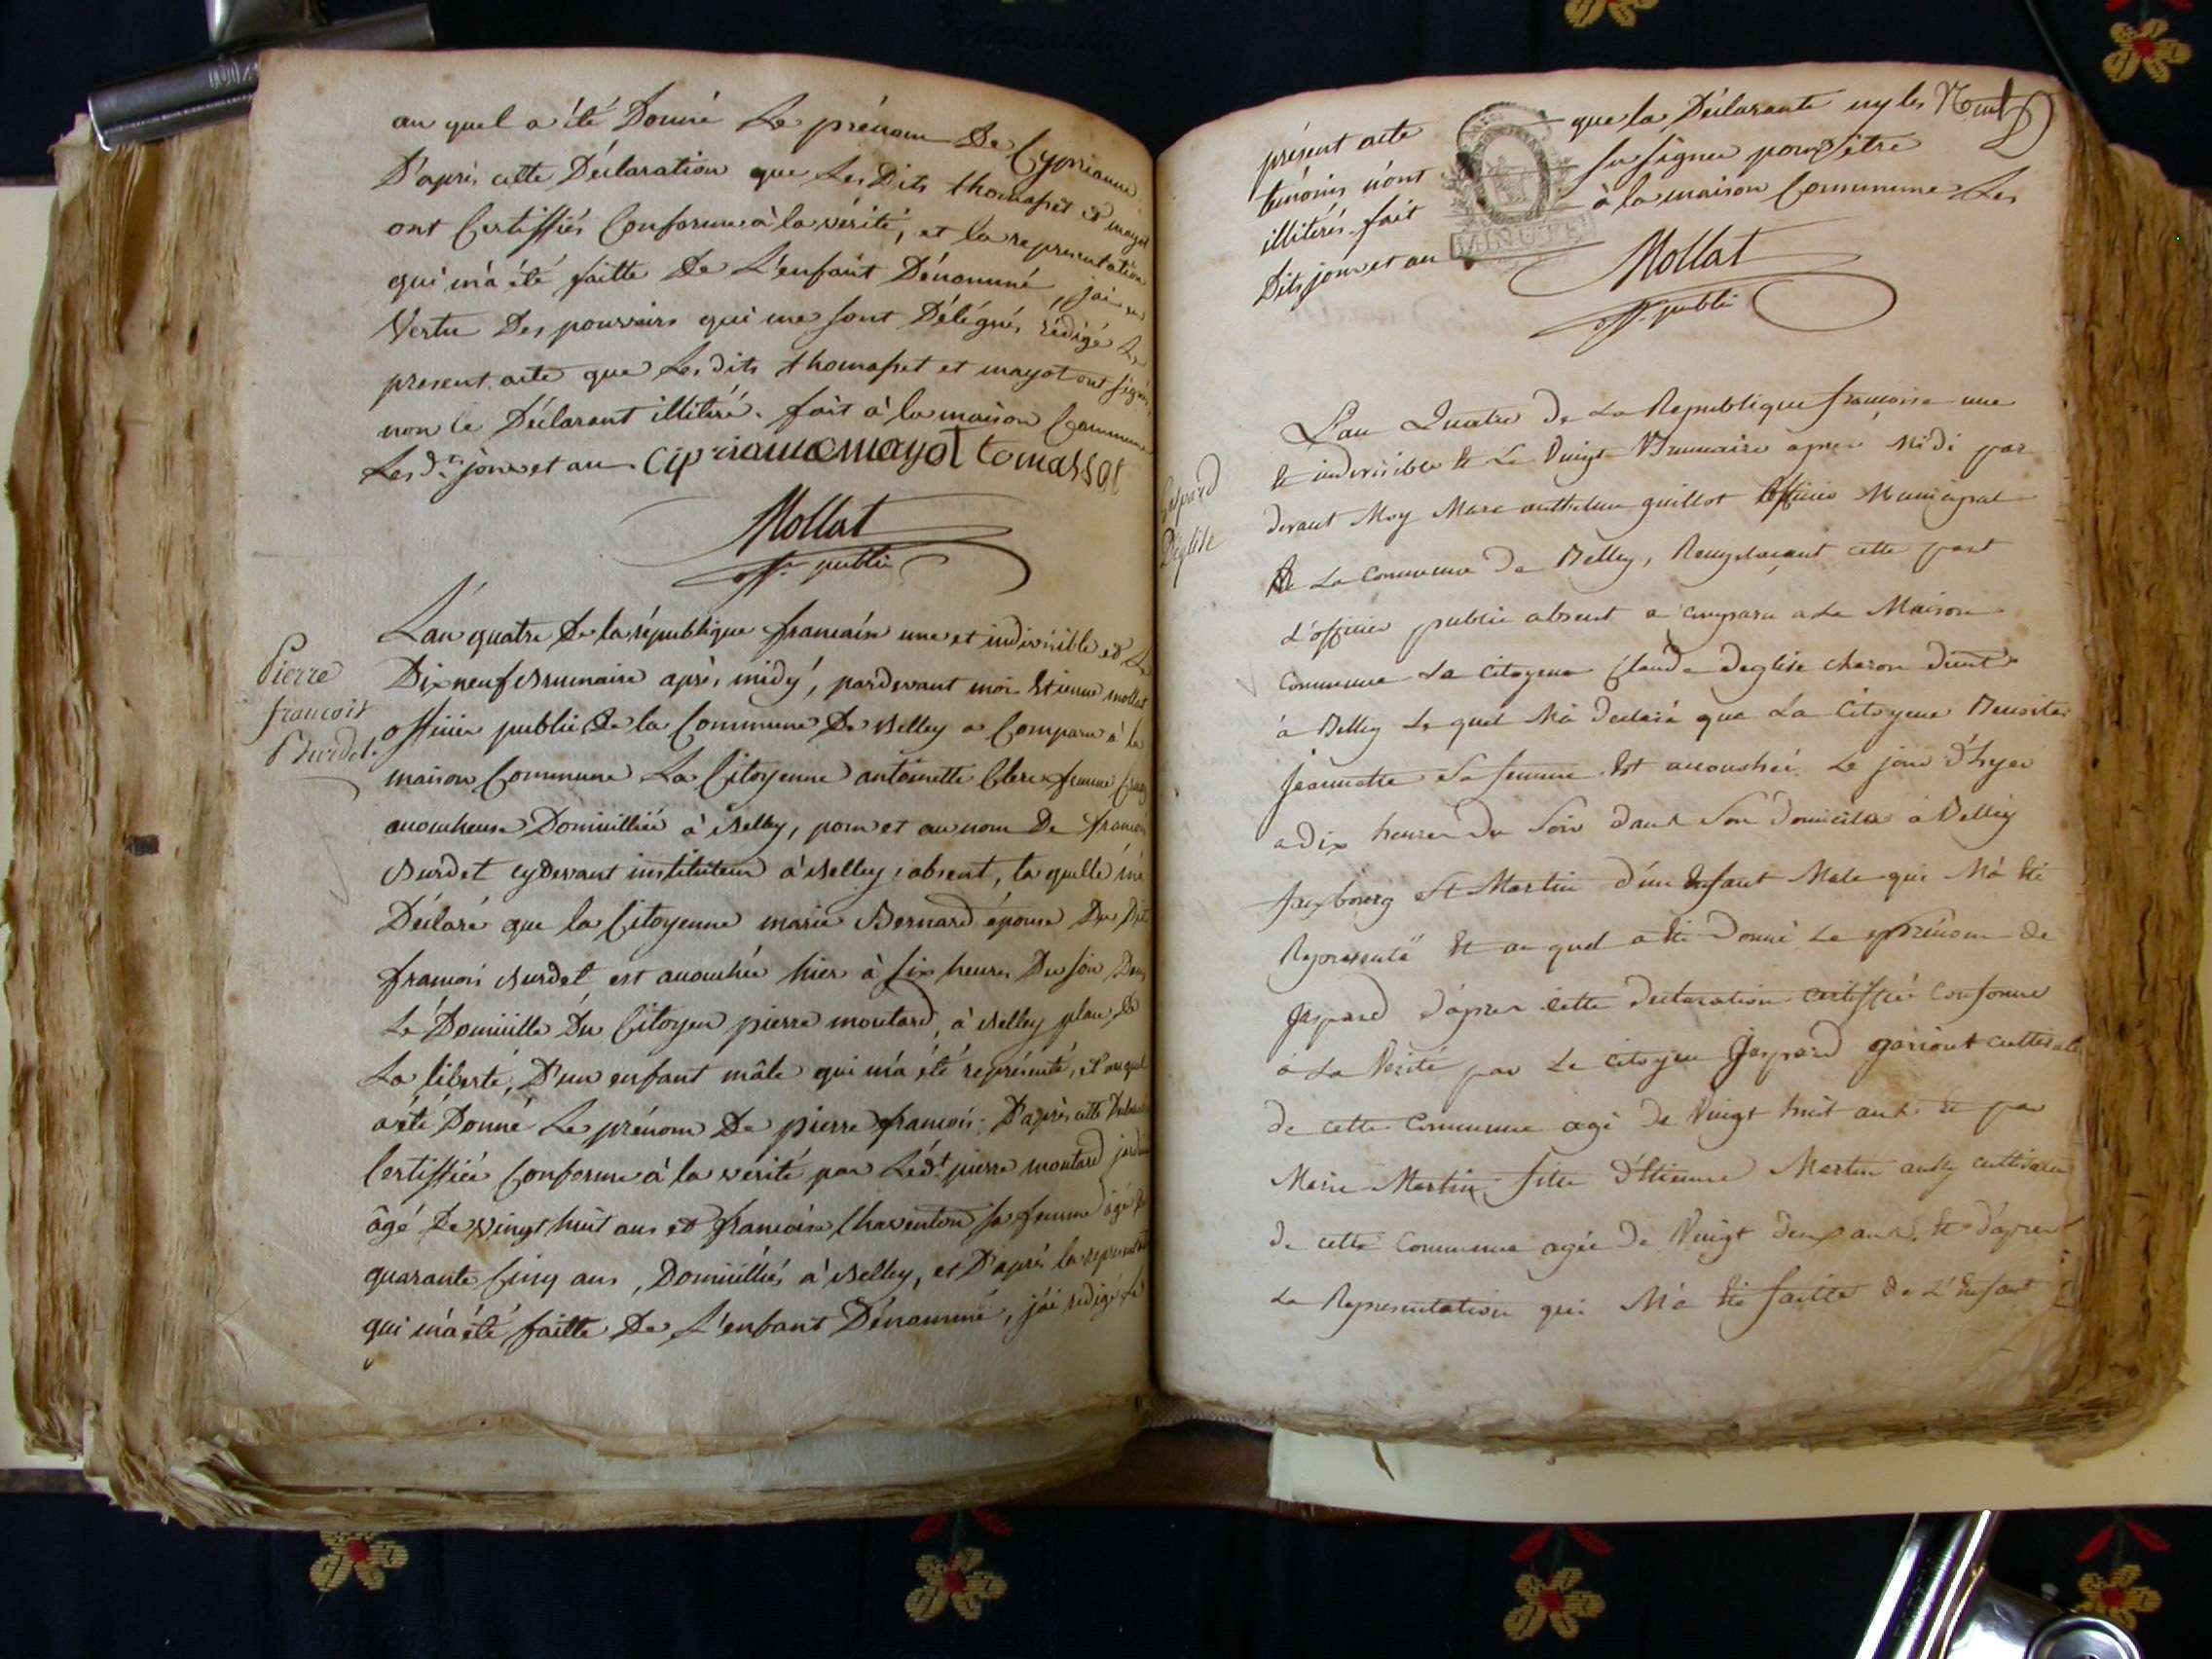 au quel a été Donné Le prénom De Cyprianne
D'après cette Déclaration que Les Dits thomasset et mayot
ont Certiffiés Conforme à la vérité, et la representation
qui m'a été faitte De L'enfant Dénommé, j'ai en
Vertu Des pouvoirs qui me sont Délégués rédigé Le
present acte que Les dits thomasset et mayot ont signés
non le Déclarant illitéré. fait à la maison Commune
Les dts jour et an Cipriane mayot tomasset
Mollat
offr public
Pierre
francois
Burdet.
L'an quatre De la république francaise une et indivisible et Le
Dix neuf Brumaire après midy, pardevant moi Etienne mollat
officier public De la Commune De Belley a Comparu à la
maison Commune La Citoyenne antoinette Clerc femme
accoucheuse Domicilliée à Belley, pour et au nom De francois
Burdet cydevant instituteur à Belley, absent, la quelle m'a
Déclaré que la Citoyenne marie Bernard épouse Du Dit
francois Burdet est accouchée hier à six heures Du soir Dans
Le Domicille Du Citoyen pierre moutard, à Belley place De
La liberté, D'un enfant mâle qui m'a été représenté, et auquel
a été Donné Le prénom De pierre francois. D'après cette Déclaration
Certiffiée Conforme à la verité par Ledt pierre moutard
âgé De vingt huit ans et francoise Charenton sa femme âgée De
quarante Cinq ans, Domicilliés à Belley, et D'après la representation
qui m'a été faitte De L'enfant Dénommé, j'ai redigé Le
présent acte que la Déclarante ny les
témoins n'ont su signer pour être
illitérés. fait à la maison Commune Les
Dits jour et an
MINUTE
Mollat
offr public
Gaspard
Deglise
L'an Quatre De La Republique francoise une
Et indivisible Et Le Vingt Brumaire apres Midi par
devant Moy Marc anthelme guillot officier Municipal
De La Commune De Belley, Remplaçant cette part
L'officier public absent a comparu a La Maison
Commune Le Citoyen Claude Deglise charon
à Belley Le quel M'a Declaré que La Citoyene
Jeannette Sa femme Est accouchée Le jour D'hyer
a dix heures Du Soir dans Son Domicile à Belley
fauxbourg St Martin d'un Enfant Male qui M'a été
Représenté Et au quel a été Donné Le prénom De
Gaspard D'après Cette Declaration certiffiée Conforme
à La Vérité par Le Citoyen Gaspard gariout cultivateur
de cette Commune agé De Vingt huit ans Et par
Marie Martin fille D'Etienne Martin cultivateur
De cette Commune agée De Vingt Deux ans, Et D'apres
La Representation qui M'a été faitte De L'Enfant